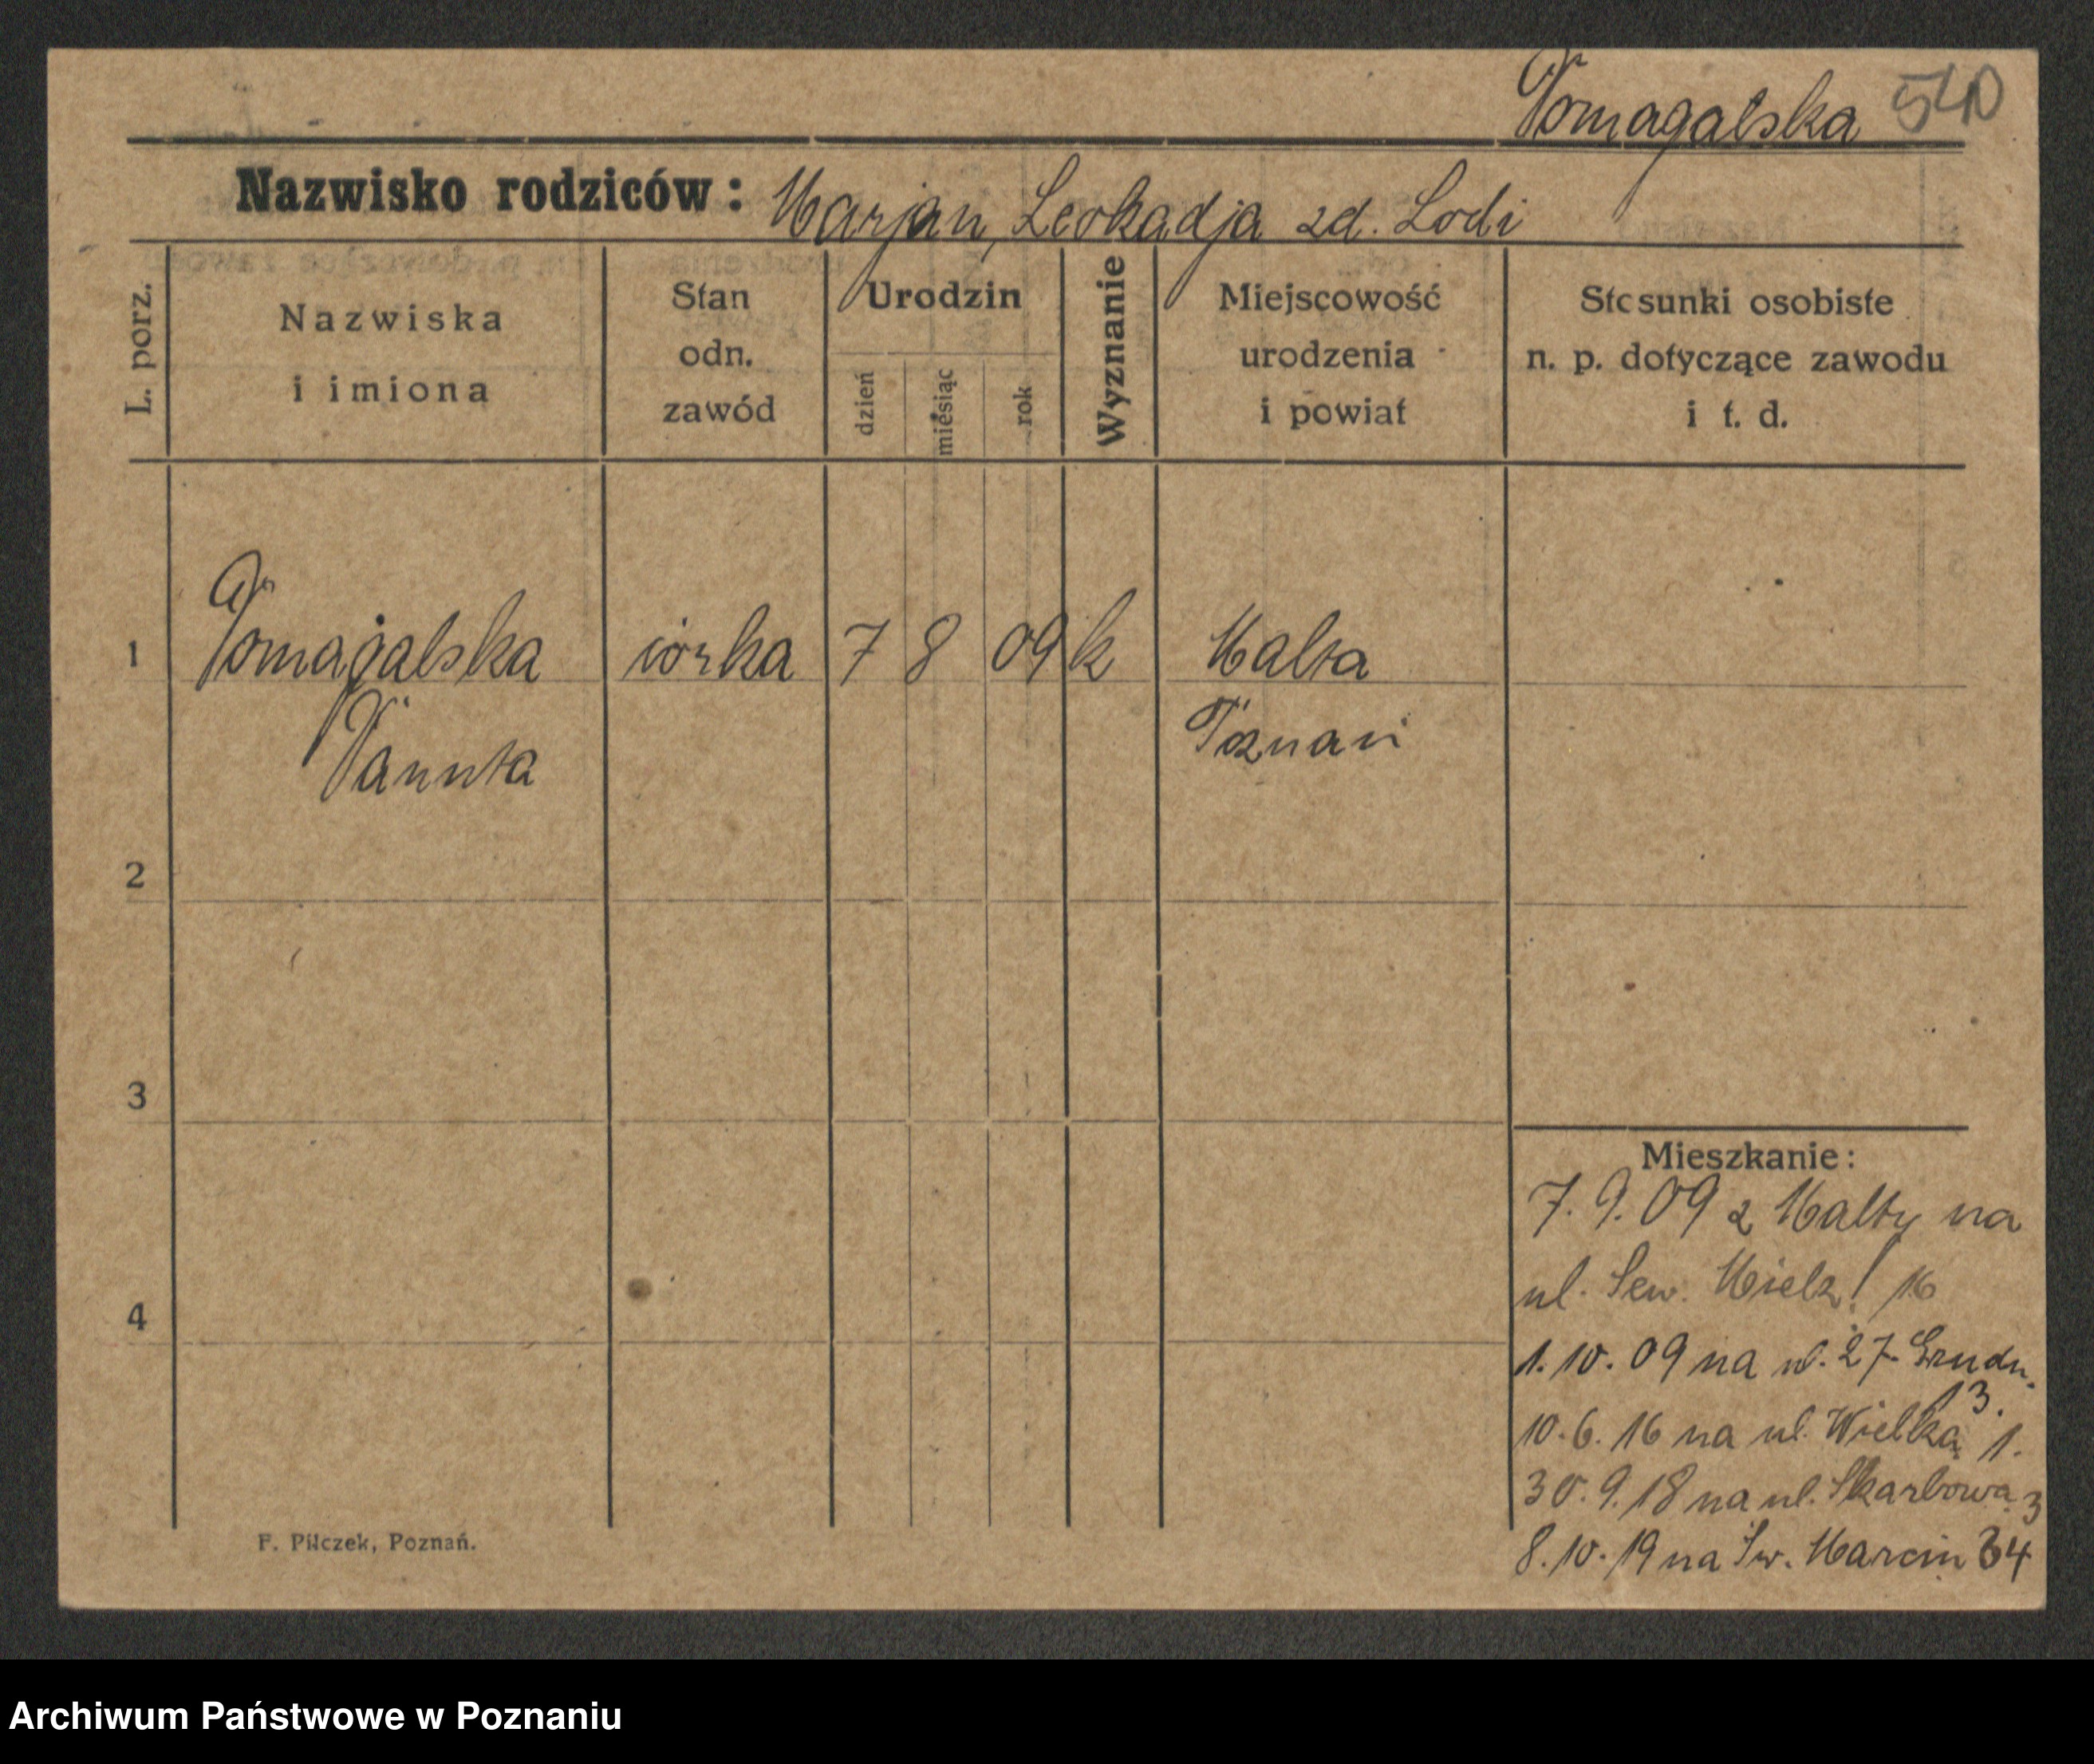 Pomagalska 540
Nazwisko rodziców: Marjan, Leokadja zd. Lodi
L. porz.
Nazwiska
i imiona
Stan
odn.
zawód
Urodzin
dzień
miesiąc
rok
Wyznanie
Miejscowość
urodzenia
i powiat
Stosunki osobiste
n. p. dotyczące zawodu
i t. d.
1 Pomagalska córka 7 8 09 k Malta
Poznań
2
3
4
Mieszkanie:
7. 9. 09 z Malty na
ul. Sew. Mielż. 16
1. 10. 09 na ul. 27 Grudn.
13.
10. 6. 16 na ul. Wielką 1.
30. 9. 18 na ul. Skarbową 3
8. 10. 19 na Św. Marcin 34
F. Pilczek, Poznań.
Archiwum Państwowe w Poznaniu